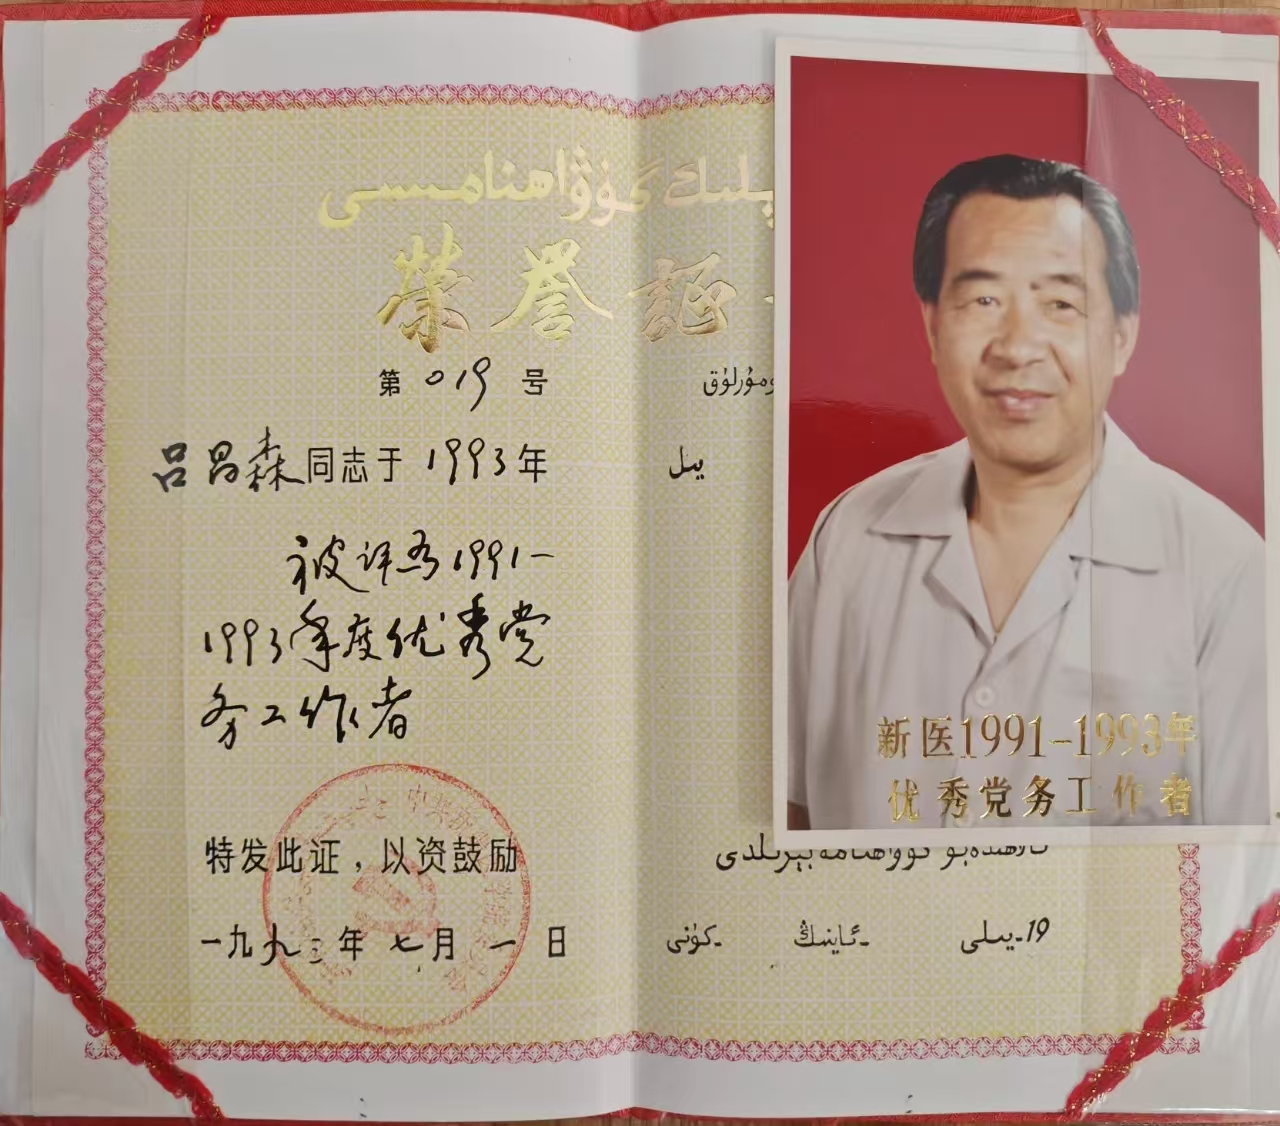 پلىك گۇۋاھنامىسى
荣誉証
第019号
نومۇرلۇق
吕昌森同志于1993年
يىل
被评为1991-
1993年度优秀党
务工作者
特发此证，以资鼓励
一九九三年七月一日
19-يىلى -ئاينىڭ -كۈنى
新医1991-1993年
优秀党务工作者